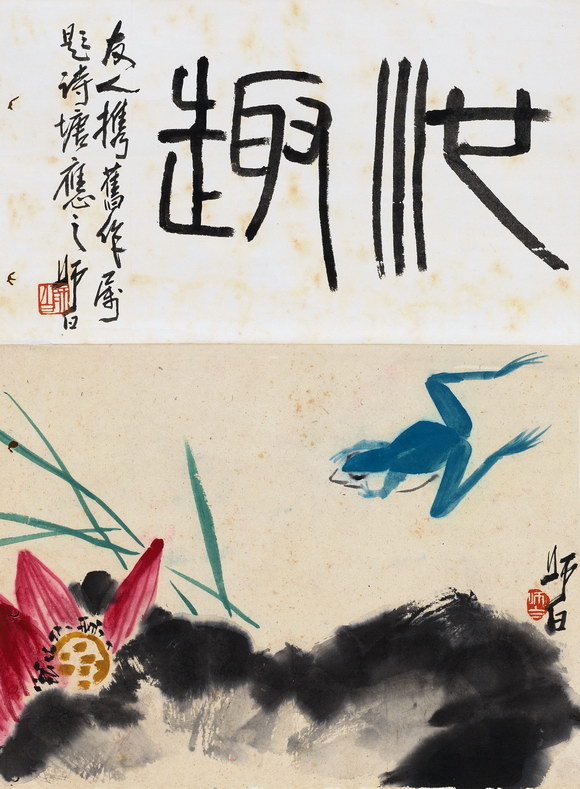 池趣
友人携舊作属
题诗塘應之 师白
师白